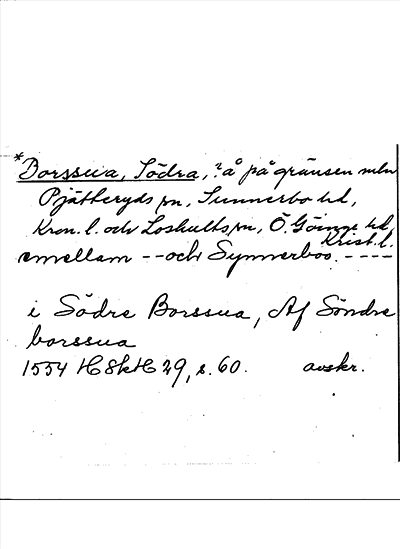 *Borssua, Södra, ? å på gränsen mln
Pjätteryds sn, Sunnerbo hd,
Kron. l. och Loshults sn, Ö. Göinge hd,
Krist. l.
emellam -- och Synnerboo. ----
i Södre Borssua, Af Söndre
borssua
1554 HSkH 29, s. 60. avskr.